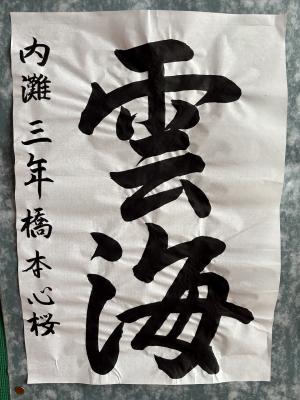 雲海
内灘 三年 橋本心桜